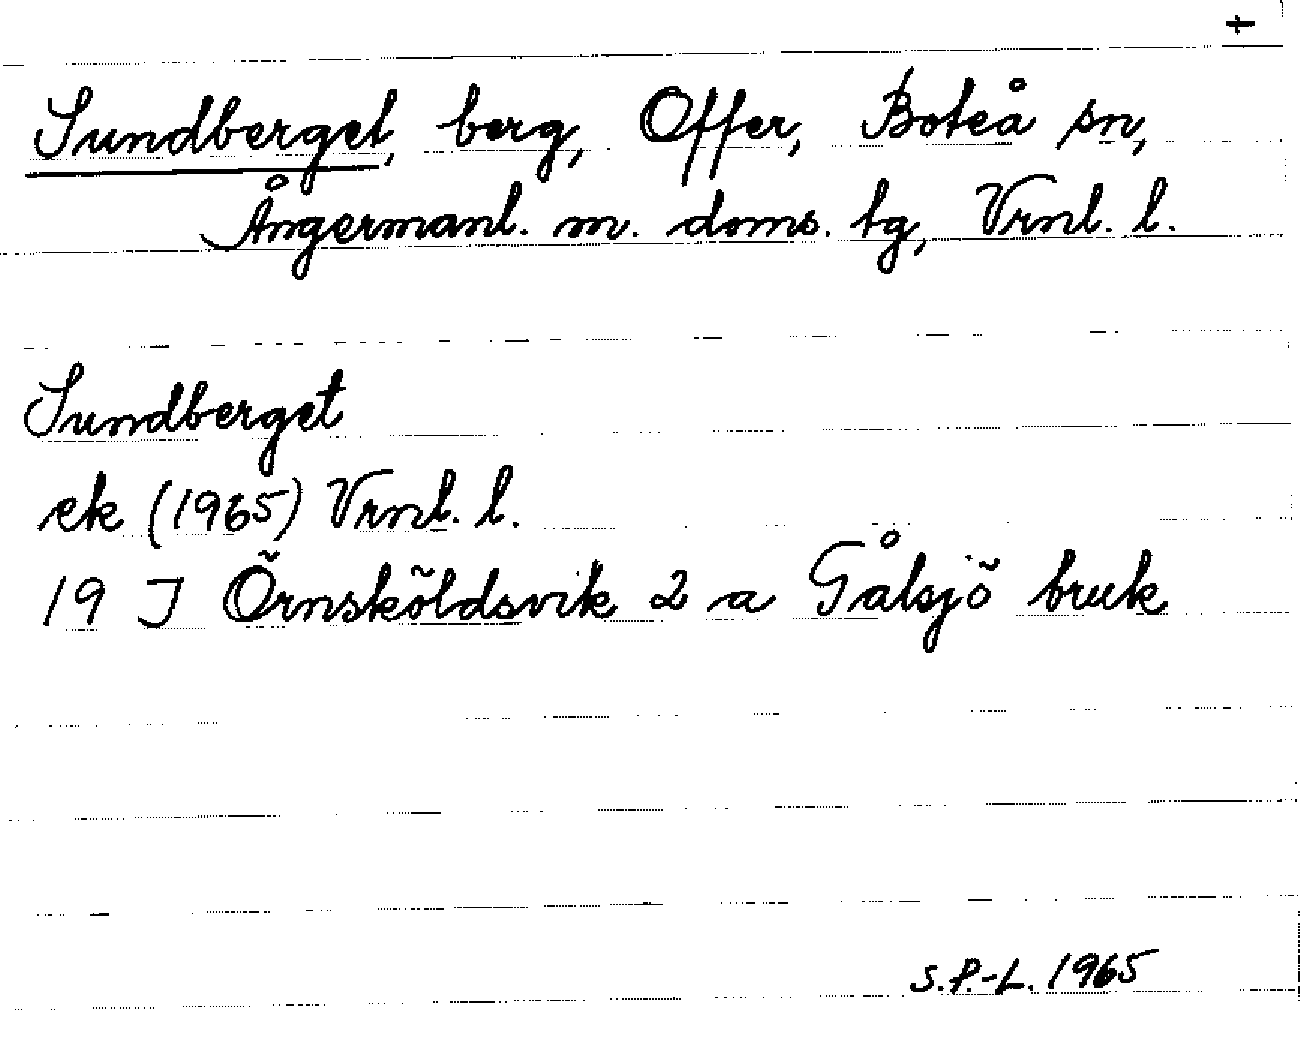 +
Sundberget, berg, Offer, Boteå sn,
Ångermanl. m. doms. tg, Vrnl. l.
Sundberget
ek (1965) Vrnl. l.
19 J Örnsköldsvik 2 a Gålsjö bruk
S.P.-L. 1965